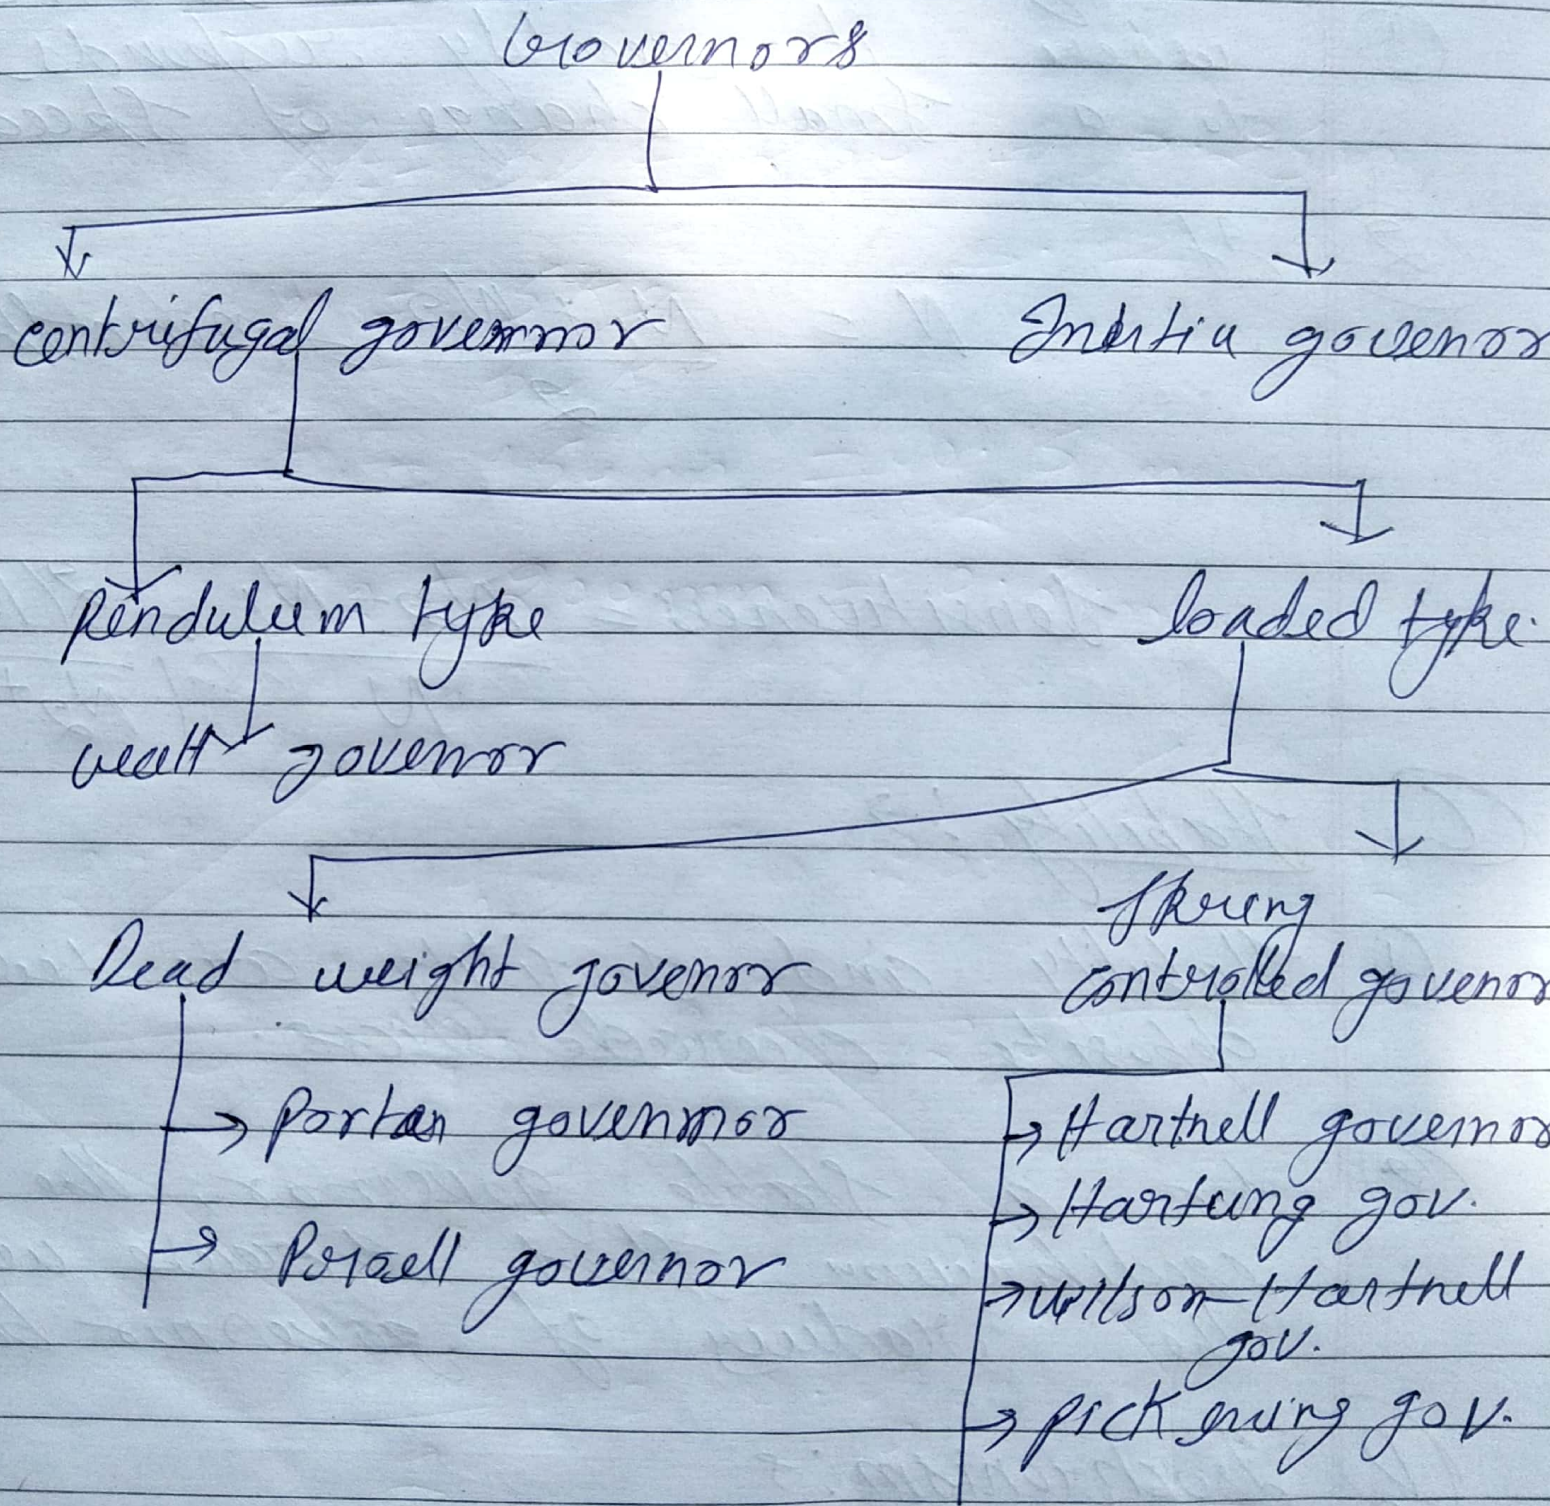 Governors
centrifugal governor
Inertia governor
Pendulum type
loaded type.
watt governor
Dead weight governor
Spring
controlled governor
Portar governor
Hartnell governor
Hartung gov.
Proell governor
wilson-Hartnell
gov.
pickering gov.